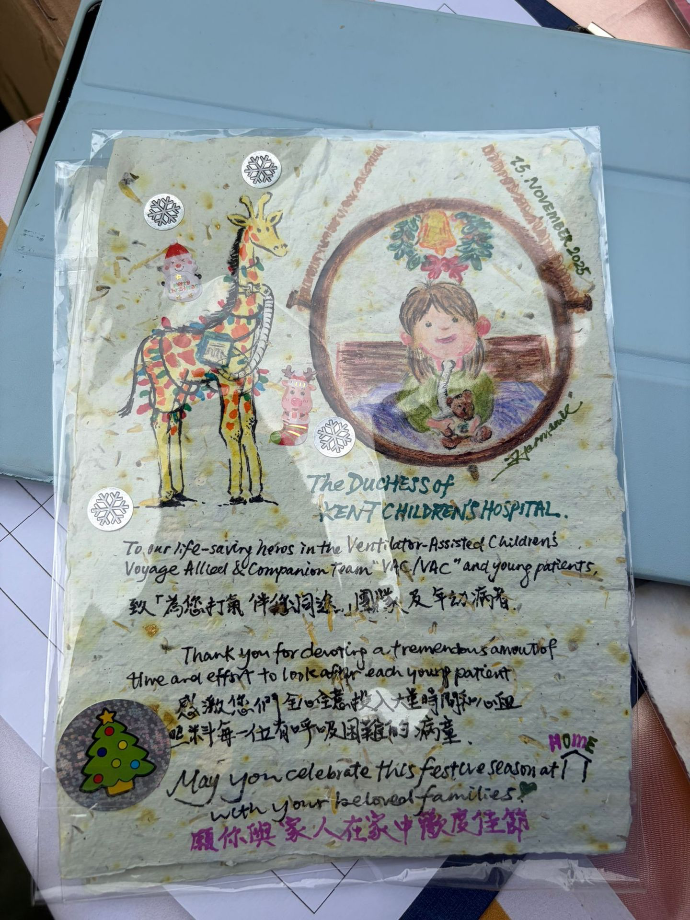 25. NOVEMBER 2025
THE DUCHESS OF
KENT CHILDREN'S HOSPITAL.
To our life-saving heros in the Ventilator-Assisted Children's
Voyage Allied & Companion Team "VAC/VAC" and young patients,
致「為您打氣 伴您同途」團隊及年幼病者.
Thank you for devoting a tremendous amout of
time and effort to look after each young patient
感激您們全心全意投入大量時間和心血
照料每一位有呼吸困難的病童.
HOME
May you celebrate this festive season at
with your beloved families.
願你與家人在家中歡度佳節